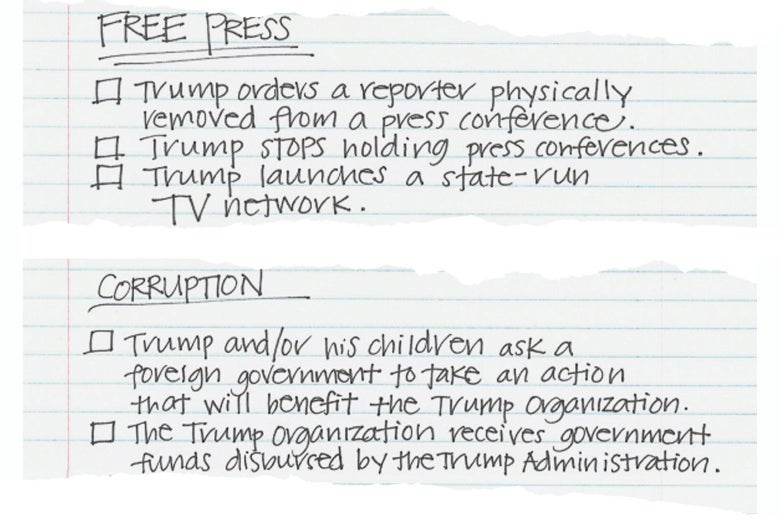 FREE PRESS
Trump orders a reporter physically
removed from a press conference.
Trump STOPS holding press conferences.
Trump launches a state-run
TV network.
CORRUPTION
Trump and/or his children ask a
foreign government to take an action
that will benefit the Trump Organization.
The Trump Organization receives government
funds disbursed by the Trump Administration.